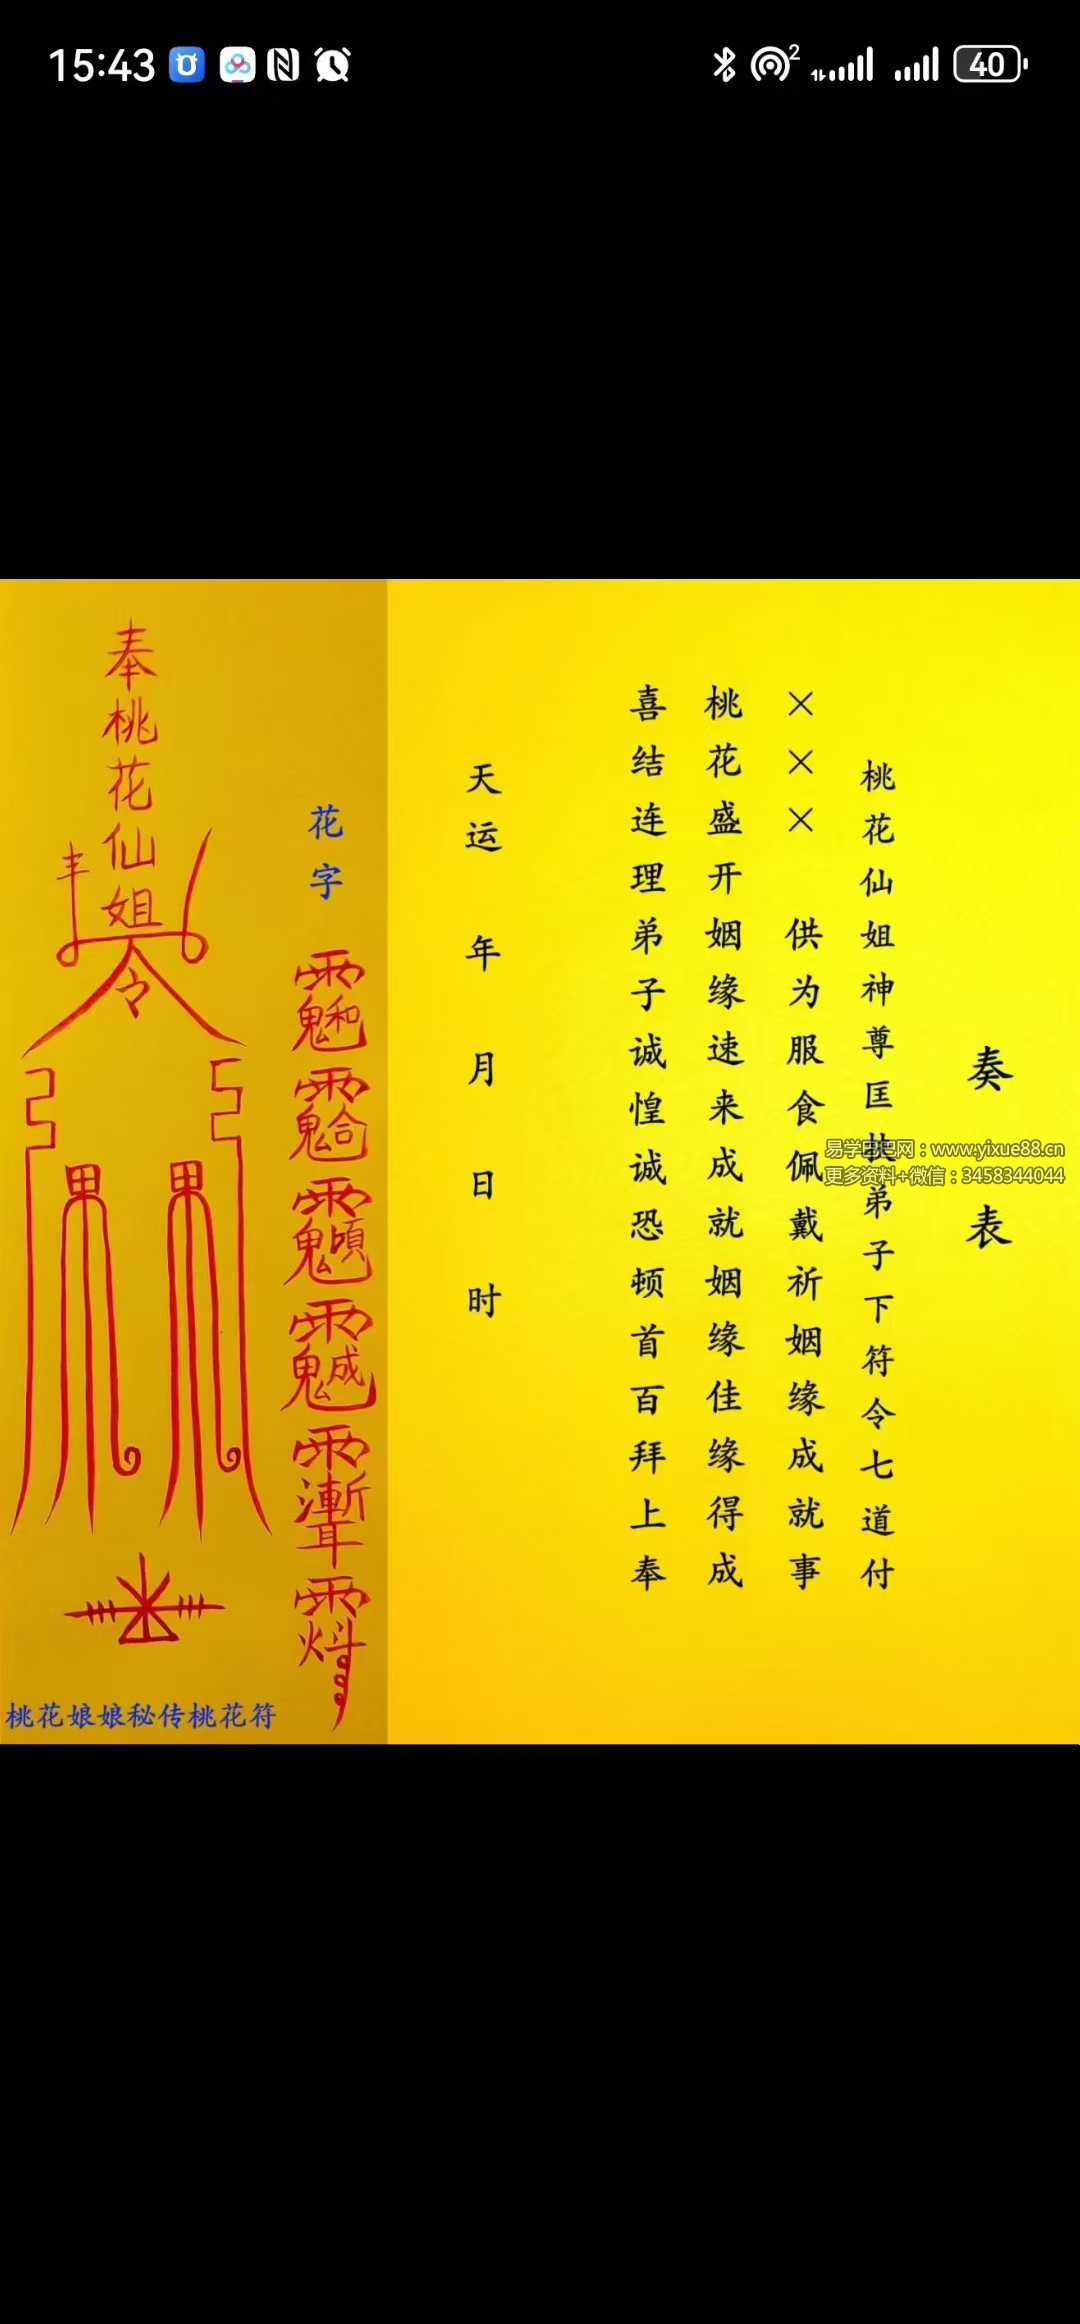 15:43
2
40
奏表
桃花仙姐神尊匡扶弟子下符令七道付
××× 供为服食佩戴祈姻缘成就事
桃花盛开姻缘速来成就姻缘佳缘得成
喜结连理弟子诚惶诚恐顿首百拜上奉
天运 年 月 日 时
易学巴巴网：www.yixue88.cn
更多资料+微信：3458344044
花字
奉桃花仙姐令
桃花娘娘秘传桃花符